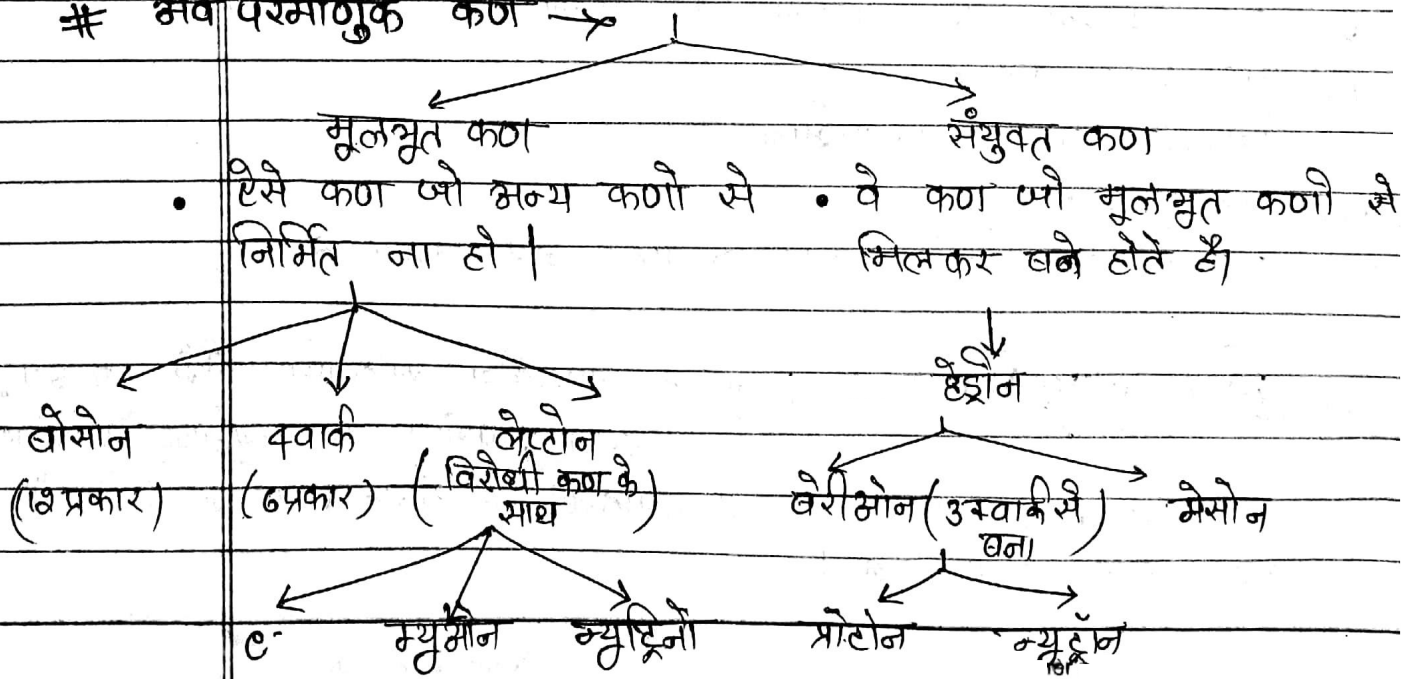 # अवपरमाणुक कण →
मूलभूत कण संयुक्त कण
• ऐसे कण जो अन्य कणो से • वे कण जो मूलभूत कणो से
निर्मित ना हो | मिलकर बने होते है।
हेड्रॉन
बोसोन क्वार्क लेप्टोन
(12 प्रकार) (6 प्रकार) (विरोधी कण के साथ) बेरीओन (3 क्वार्क से बना) मेसोन
e- म्युओन न्युट्रिनो प्रोटोन न्यूट्रॉन